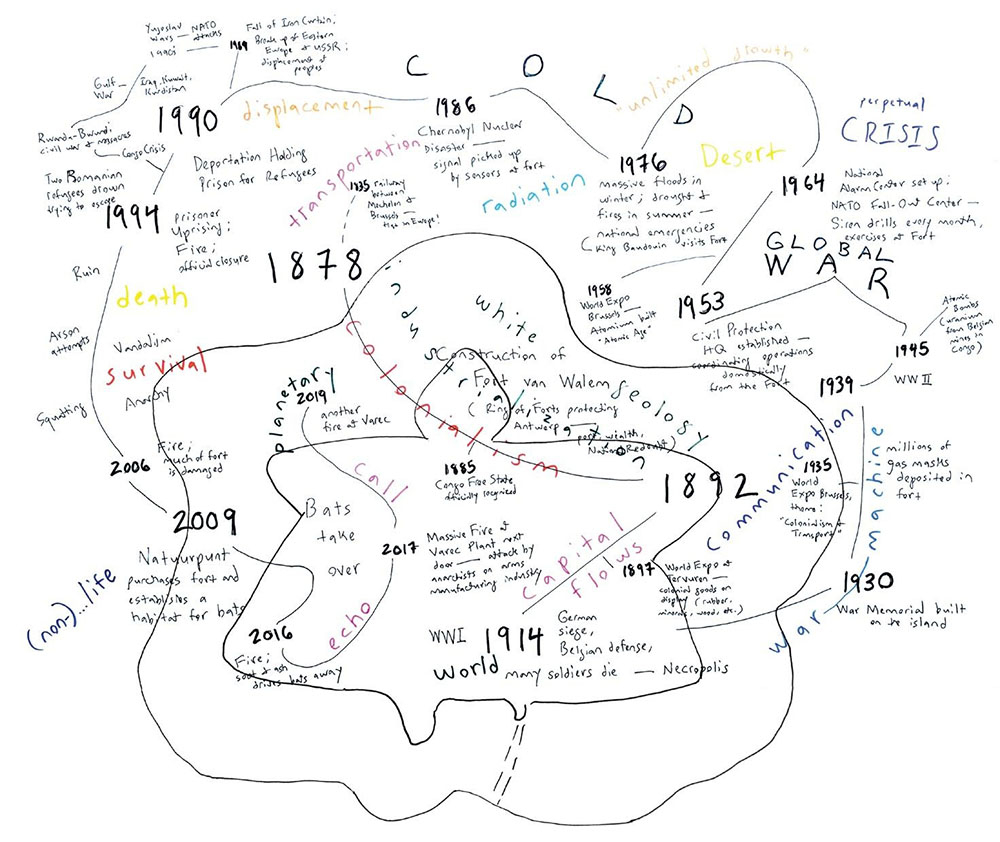 Yugoslav
Wars — NATO
attacks
1990s
1989
Fall of Iron Curtain;
Break up of Eastern
Europe & USSR;
displacement of
peoples
Gulf
War —
Iraq, Kuwait,
Kurdistan
Rwanda-Burundi
civil war & massacres
Congo Crisis
1990
displacement
Deportation Holding
Prison for Refugees
Two Romanian
refugees drown
trying to escape
1994
Prisoner
Uprising;
Fire;
official closure
Ruin
death
Arson
attempts
Vandalism
survival
Anarchy
Squatting
2006
Fire;
much of fort
is damaged
2009
Natuurpunt
purchases fort and
establishes a
habitat for bats
(non-)...life
C O L D
1986
Chernobyl Nuclear
Disaster —
signal picked up
by sensors at fort
radiation
transportation
1835 railway
between
Mechelen &
Brussels —
in Europe!
1878
"unlimited growth"
1976
massive floods in
winter; drought &
fires in summer —
national emergencies
King Baudouin visits Fort
Desert
perpetual
CRISIS
1964
National
Alarm Center set up;
NATO Fall-Out Center —
Siren drills every month,
exercises at Fort
GLOBAL
WAR
1958
World Expo
Brussels —
Atomium built
"Atomic Age"
1953
Civil Protection
HQ established —
coordinating operations
domestically
from the Fort
Atomic
Bombs
(uranium
from Belgian
mines in
Congo)
1945
WW II
1939
millions of
gas masks
deposited in
fort
war machine
communication
1935
World
Expo Brussels,
theme:
"Colonialism &
Transport"
1930
War Memorial built
on the island
white
geology
Construction of
Fort van Walem
(Ring of Forts protecting
Antwerp —
port, wealth,
National Redoubt)
colonialism
1885
Congo Free State
officially recognized
1892
capital
flows
1897
World Expo at
Tervuren —
colonial goods on
display (rubber,
minerals, wood, etc.)
WWI 1914
German
siege,
Belgian defense,
World many soldiers die — Necropolis
planetary
2019
another
fire at Varec
call
Bats
take
over
2017
Massive Fire at
Varec Plant next
door — attack by
anarchists on arms
manufacturing industry
echo
2016
Fire;
soot & ash
drives bats away